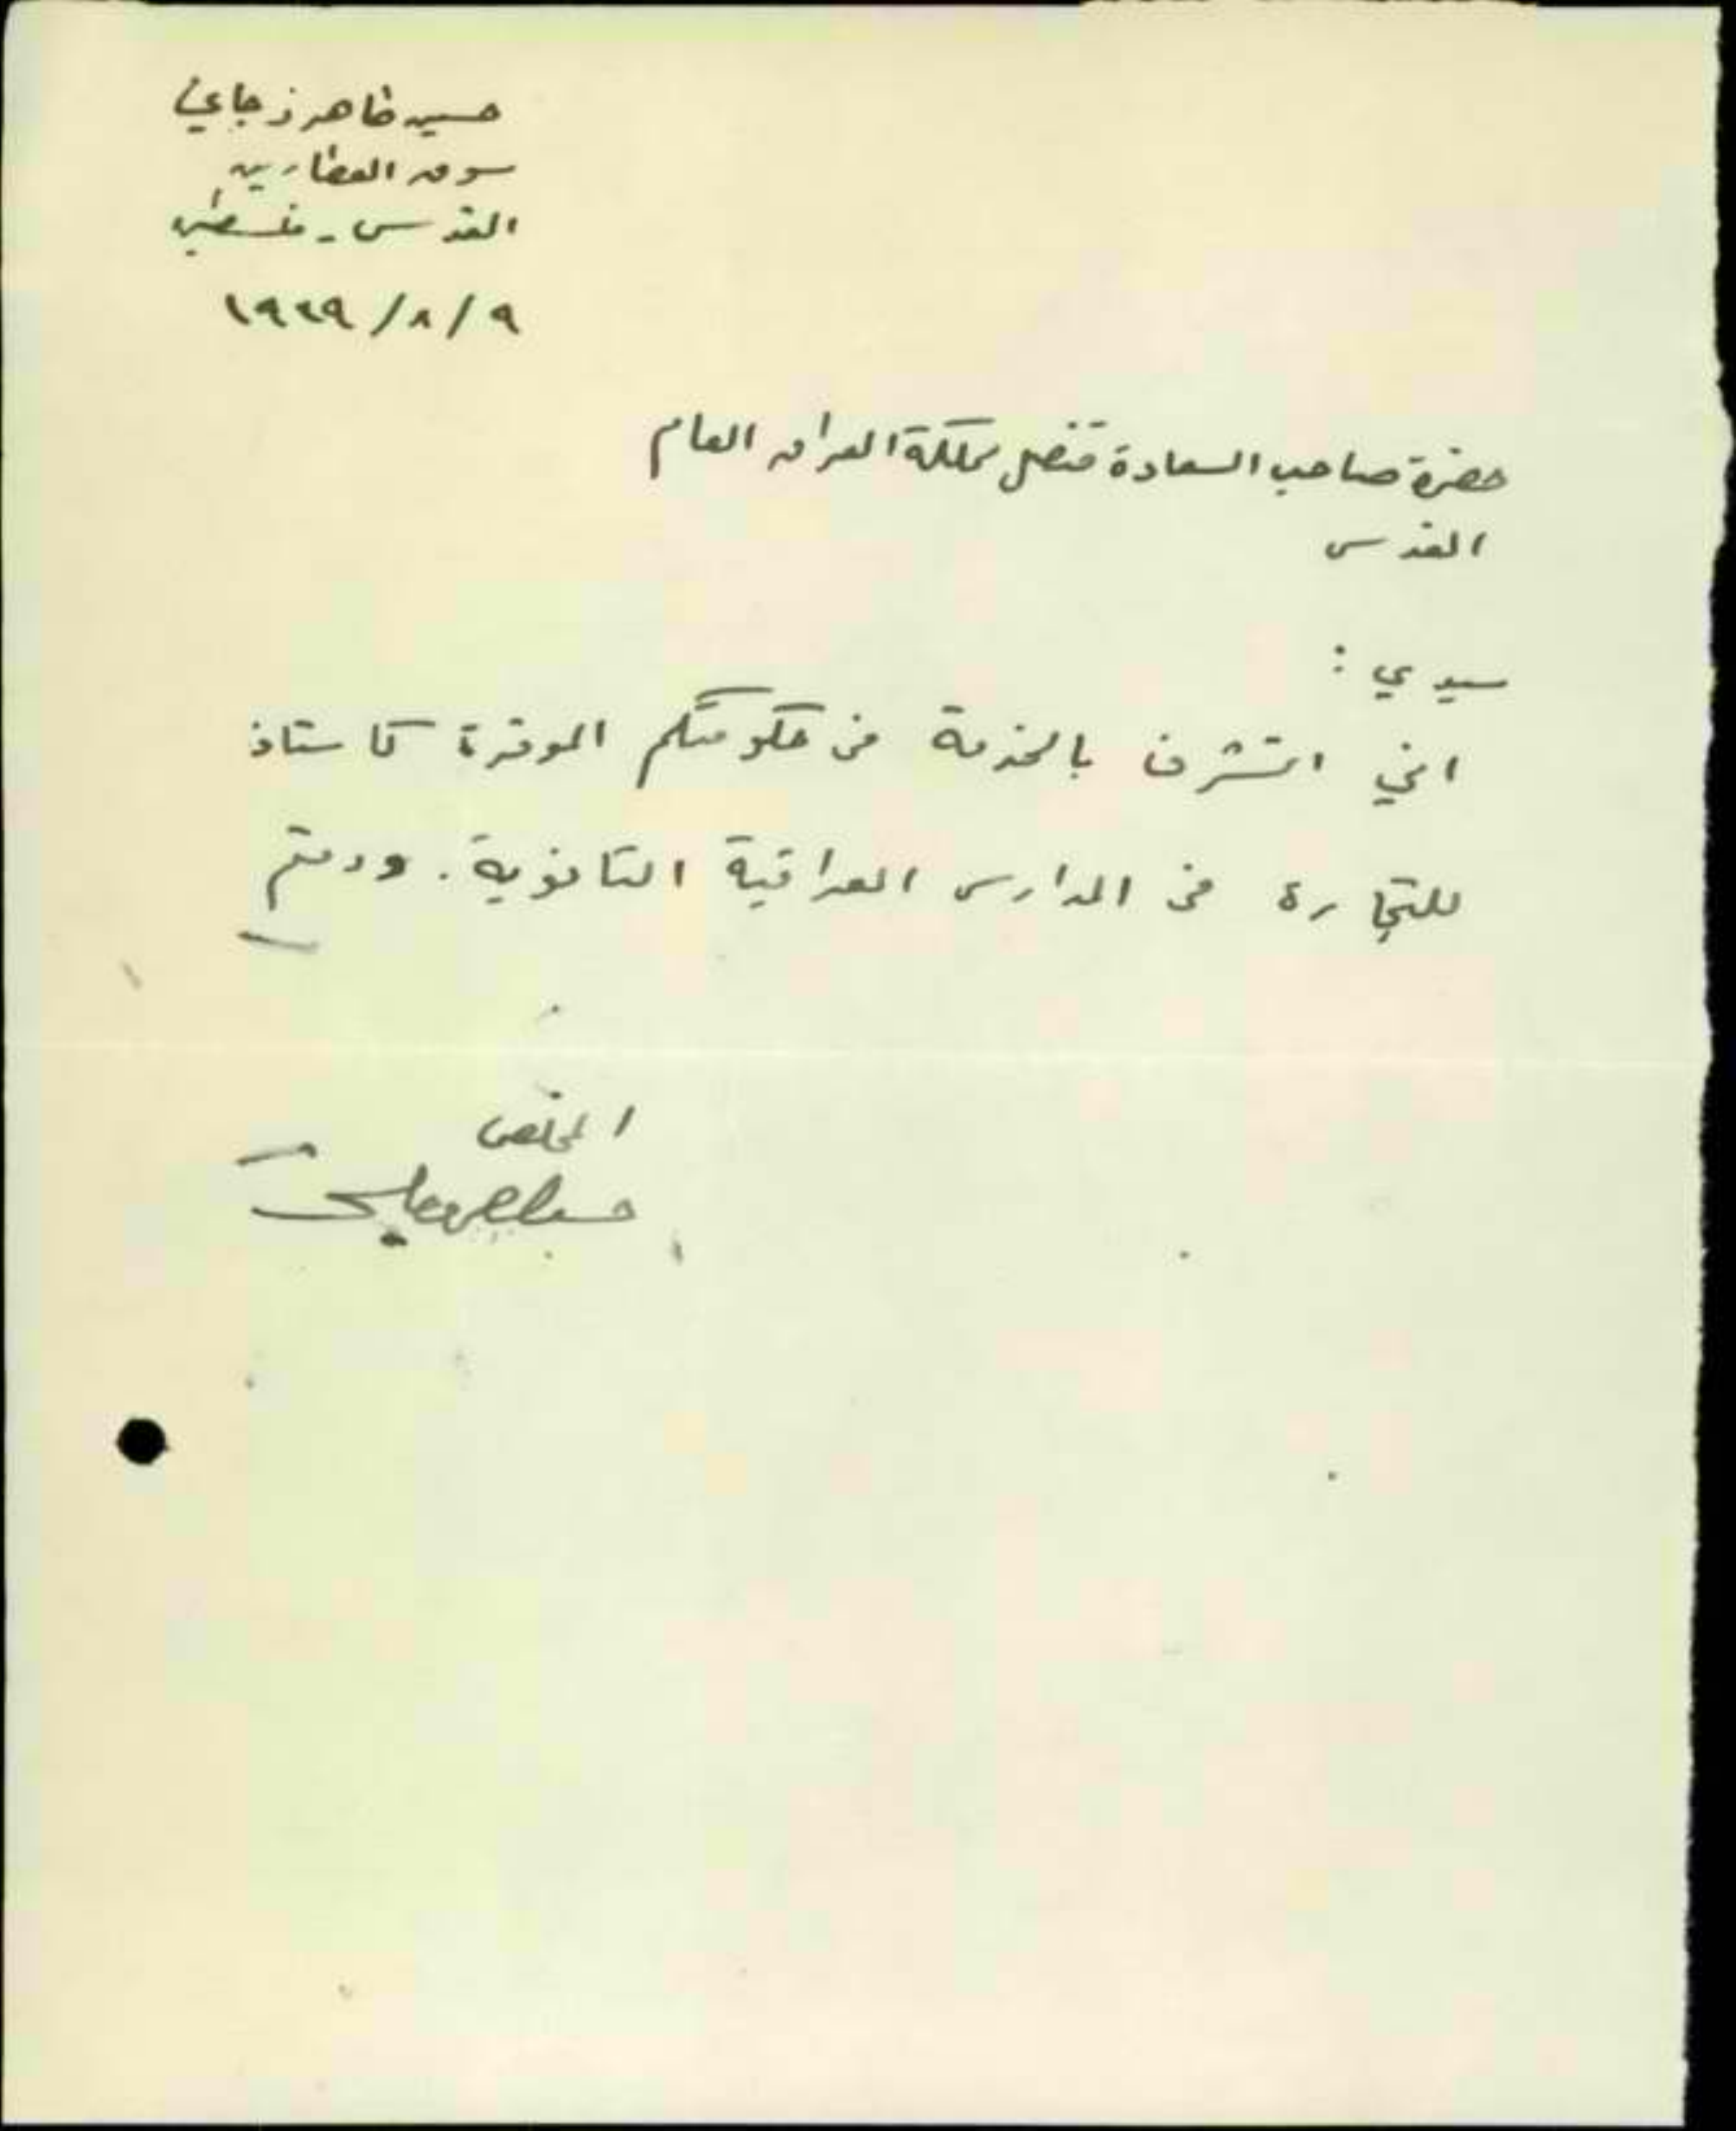 حسين ظاهر زجاجي
سوق العطارين
القدس - فلسطين
٩ / ٨ / ١٩٣٩
حضرة صاحب السعادة قنصل مملكة العراق العام
القدس
سيدي :
اني اتشرف بالخدمة في حكومتكم الموقرة كاستاذ
للتجارة في المدارس العراقية الثانوية . ودمتم
المخلص